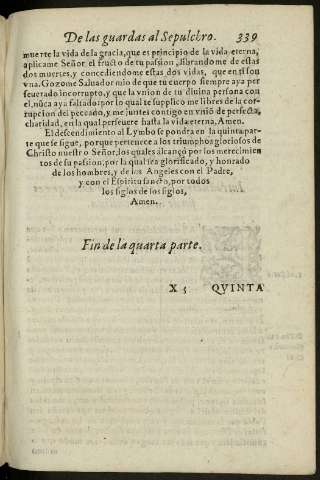 De las guardas al Sepulchro. 339
muerte la vida de la gracia, que es principio de la vida eterna,
aplicame Señor el fructo de tu pasion, librandome de estas
dos muertes, y concediendome estas dos vidas, que en ti son
vna. Gozome Saluador mio de que tu cuerpo siempre aya per
seuerado incorrupto, y que la vnion de tu diuina persona con
el, nũca aya faltado: por lo qual te supplico me libres de la cor-
rupcion del peccado, y me juntes contigo en vniõ de perfecta
charidad, en la qual perseuere hasta la vida eterna, Amen.
El descendimiento al Lymbo se pondra en la quinta par-
te que se sigue, porque pertenece a los triumphos gloriosos de
Christo nuestro Señor, los quales alcançó por los merecimien
tos de su pasion, por la qual sea glorificado, y honrado
de los hombres, y de los Angeles con el Padre,
y con el Espiritu sancto, por todos
los siglos de los siglos,
Amen.
Fin de la quarta parte.
X 5 QVINTA